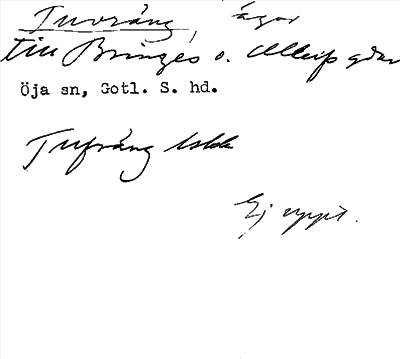 Tuvräng, ägor
till Bringes o. Alleifs gdar
Öja sn, Gotl. S. hd.
Tufräng
Ej uppt.